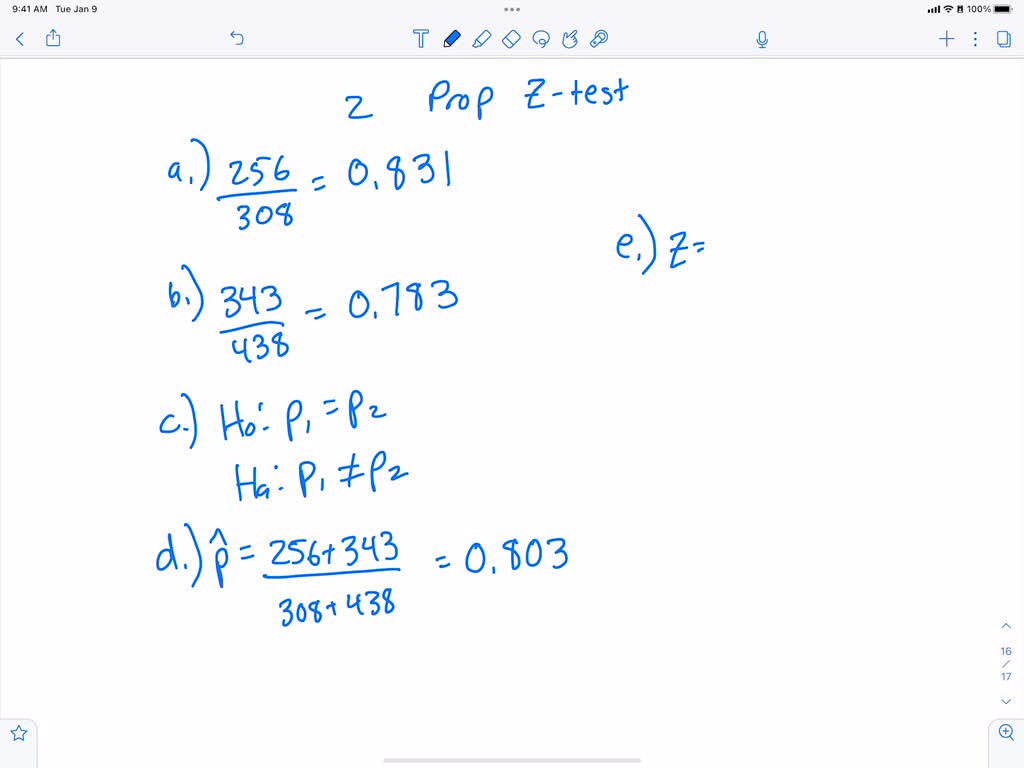 9:41 AM Tue Jan 9
100%
2 Prop Z-test
a.) 256/308 = 0.831
b.) 343/438 = 0.783
c.) H₀: p₁ = p₂
Hₐ: p₁ ≠ p₂
d.) p̂ = 256+343/308+438 = 0.803
e.) Z=
16
/
17